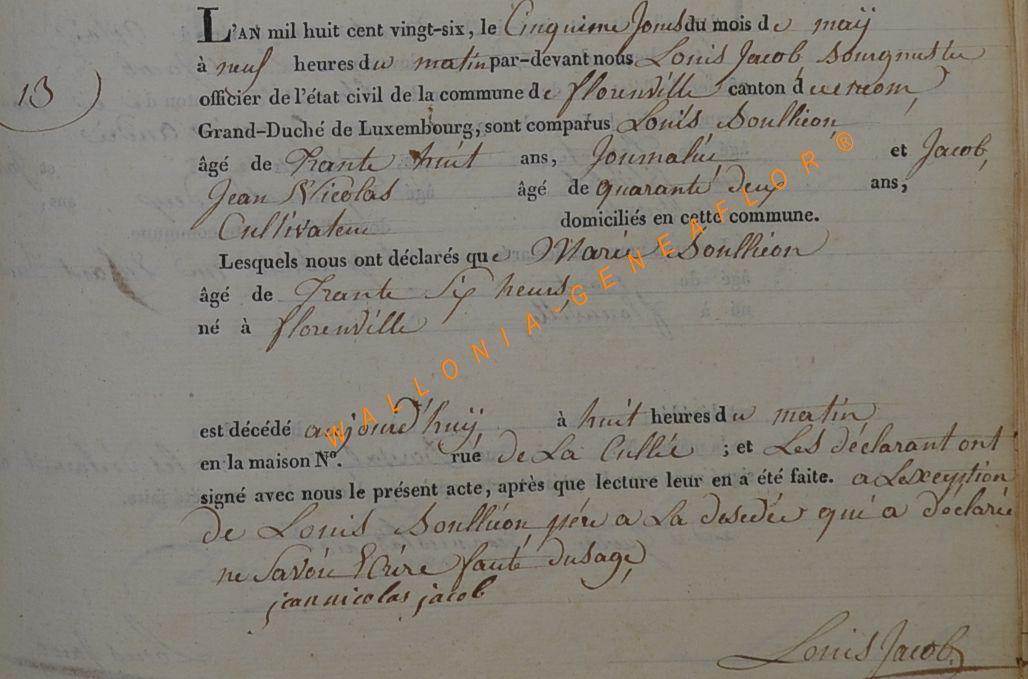 L'AN mil huit cent vingt-six, le Cinquime Jour du mois de maÿ
à neuf heures du matin par-devant nous Louis Jacob Bourgmestre
13)
officier de l'état civil de la commune de florenville canton d
Grand-Duché de Luxembourg, sont comparus Louis Soullieon
âgé de Trante huit ans, Journalié et Jacob,
Jean Nicolas âgé de quarante deux ans,
Cultivateur domiciliés en cette commune.
Lesquels nous ont déclarés que Marie Soullieon
âgé de Trante Six heurs,
né à florenville
est décédé aujourd'huÿ à huit heures du matin
en la maison N°. rue de La Cullée ; et Les déclarant ont
signé avec nous le présent acte, après que lecture leur en a été faite. a Lexeyption
de Louis Soullieon pére a La desedée qui a déclarée
ne Savoir Ecrire faute dusage,
jean nicolas jacob
Louis Jacob
WALLONIA-GENEAFLOR ®